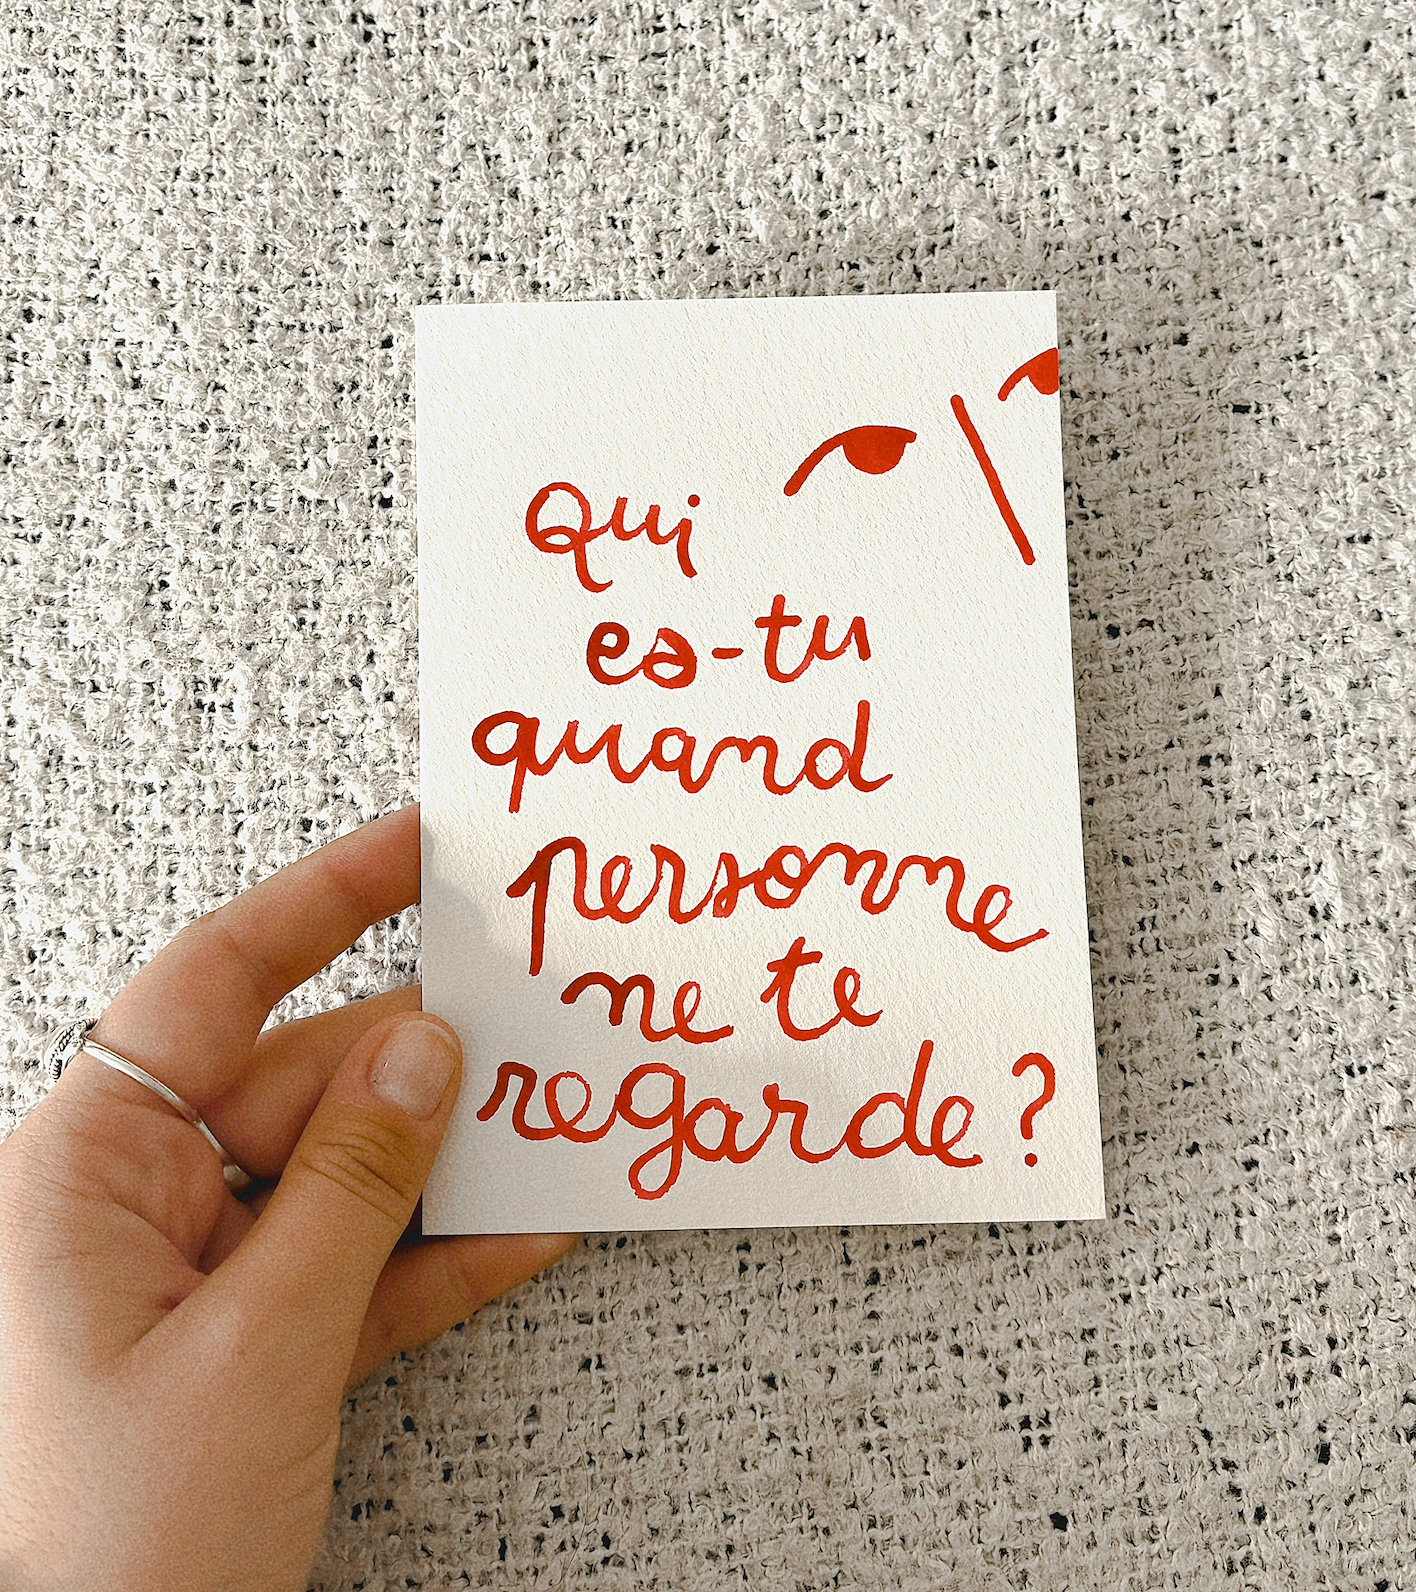 Qui
es-tu
quand
personne
ne te
regarde ?